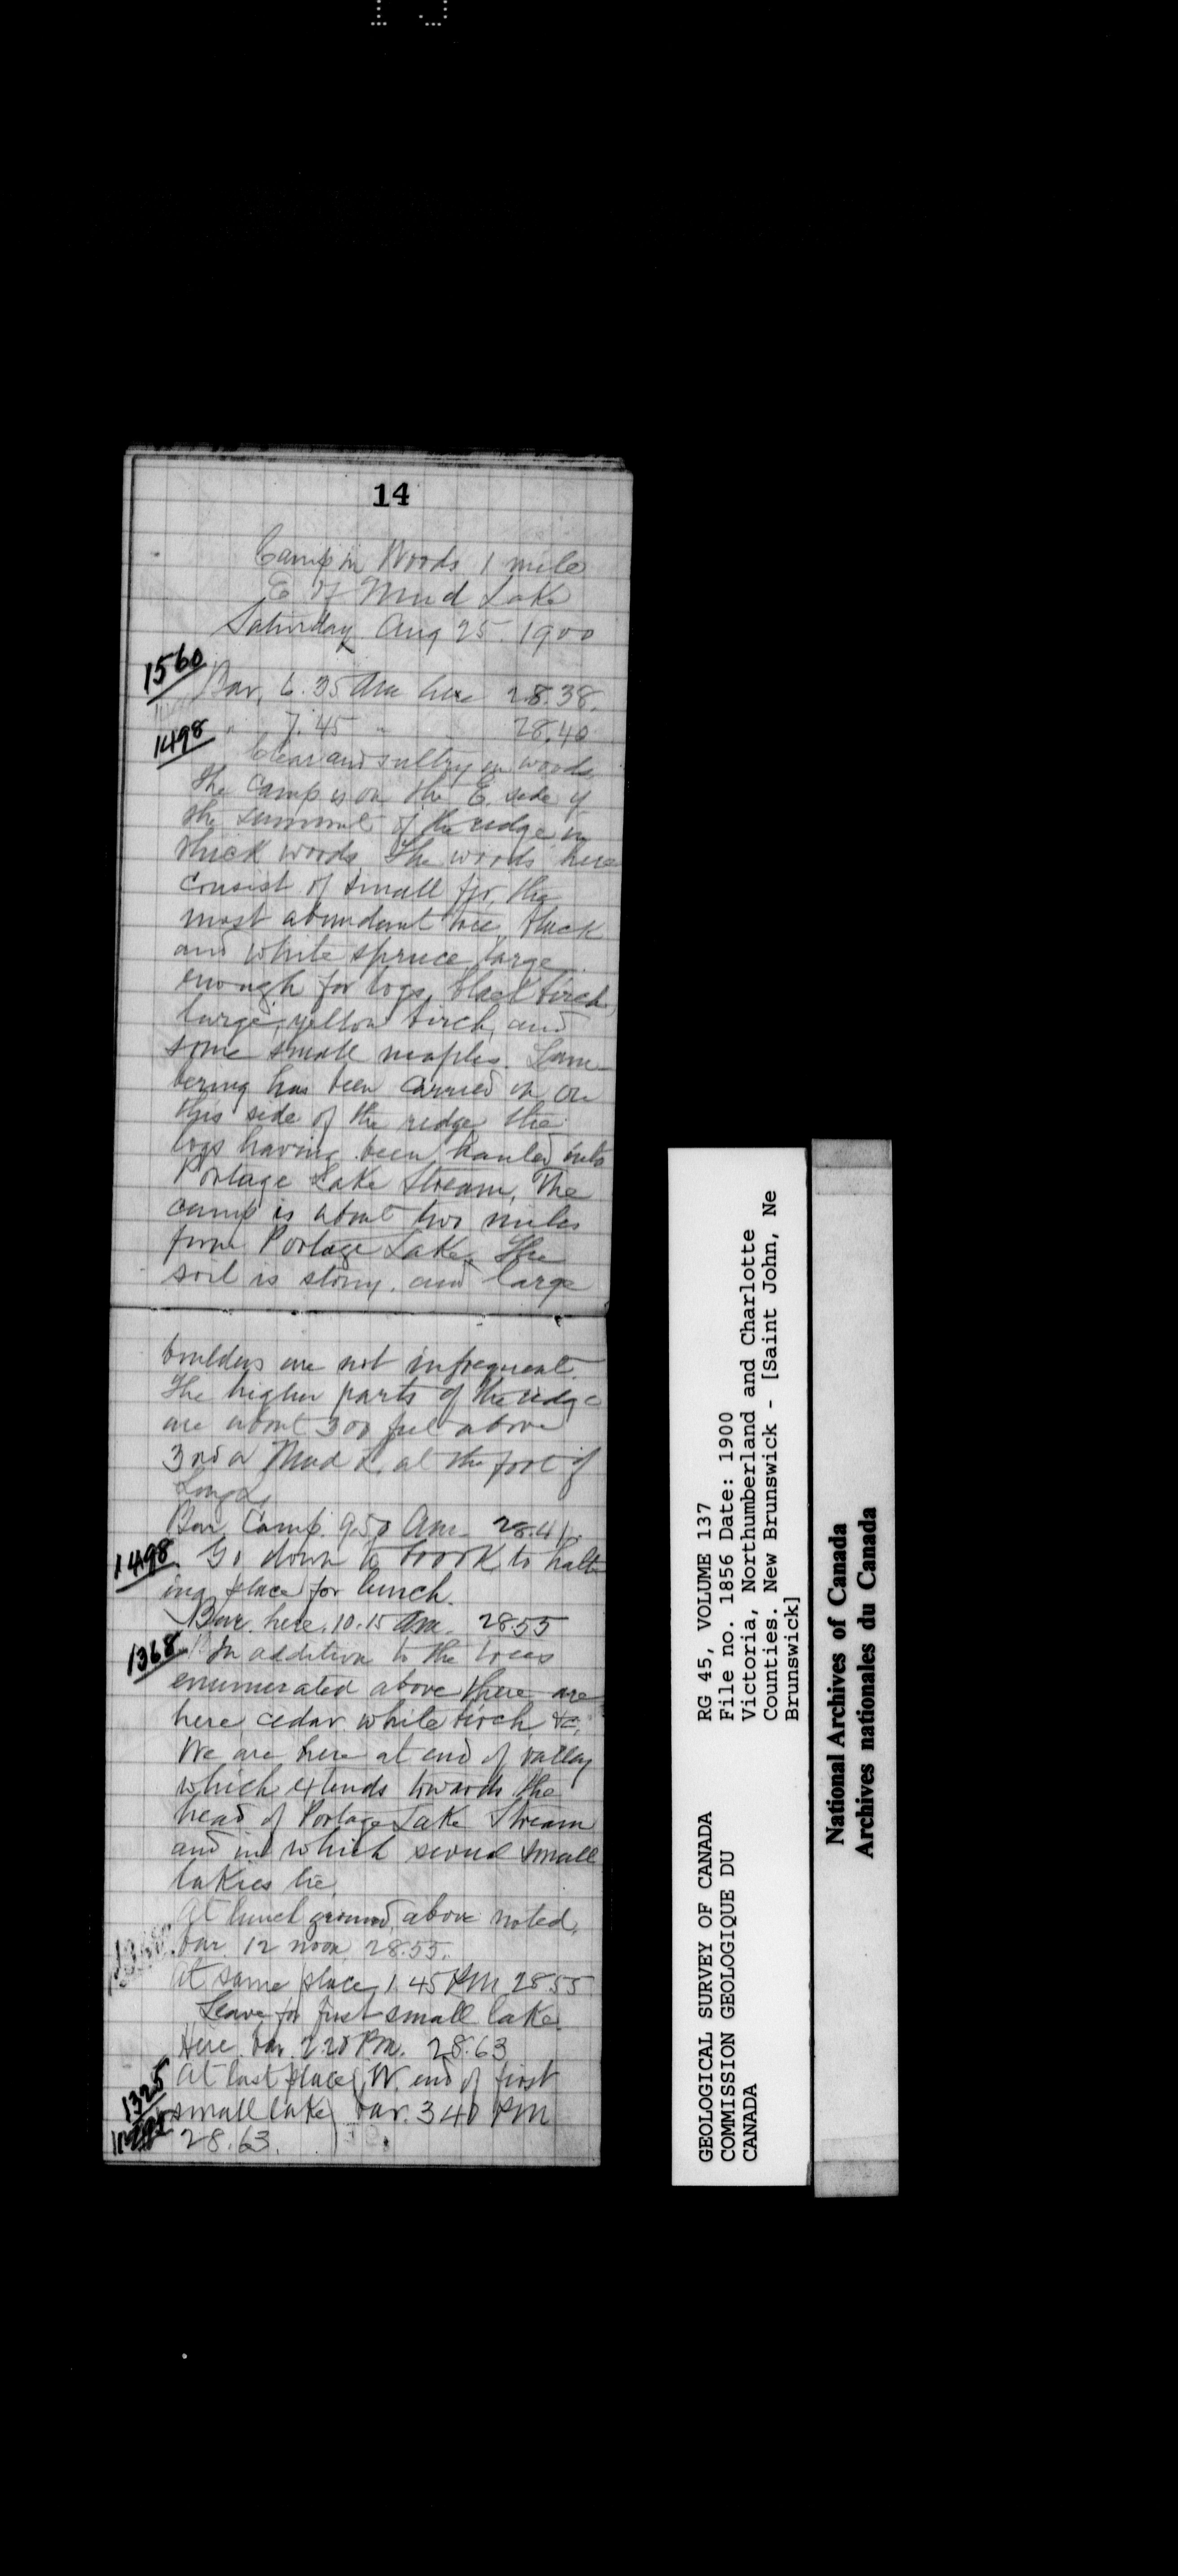 14
Camp in Woods 1 mile
E of Mud Lake
Saturday Aug 25. 1900
1560
Bar. 6.35 Am here 28.38.
" 7.45 " 28.40
1498
Clear and sultry in woods
The camp is on the E. side of
the summit of the ridge in
thick woods The woods here
consist of small fir, the
most abundant tree, black
and white spruce, large
enough for logs, black birch
large, yellow birch, and
some small maples. Lum
bering has been carried on on
this side of the ridge the
logs having been hauled into
Portage Lake Stream. The
camp is about two miles
from Portage Lake. The
soil is stony. and large
boulders are not infrequent.
The higher parts of the ridge
are about 300 feet above
3rd or Mud L. at the foot of
Long L.
Bar. Camp. 9.50 Am. 28.41.
1498. Go down to brook to halt
ing place for lunch.
Bar. here. 10.15 Am. 28.55
1368 In addition to the trees
enumerated above there are
here cedar white birch &c.
We are here at end of valley
which extends towards the
head of Portage Lake Stream
and in which several small
lakies lie.
At lunch ground, above noted,
bar. 12 noon 28.55.
At same place 1.45 PM 28.55
Leave for first small lake.
Here bar. 2.20 Pm. 28.63
At last place (W. end of first
1325
small lake) bar. 3 40 PM
28.63.
RG 45, VOLUME 137
File no. 1856 Date: 1900
Victoria, Northumberland and Charlotte
Counties. New Brunswick - [Saint John, Ne
Brunswick]
GEOLOGICAL SURVEY OF CANADA
COMMISSION GEOLOGIQUE DU
CANADA
National Archives of Canada
Archives nationales du Canada